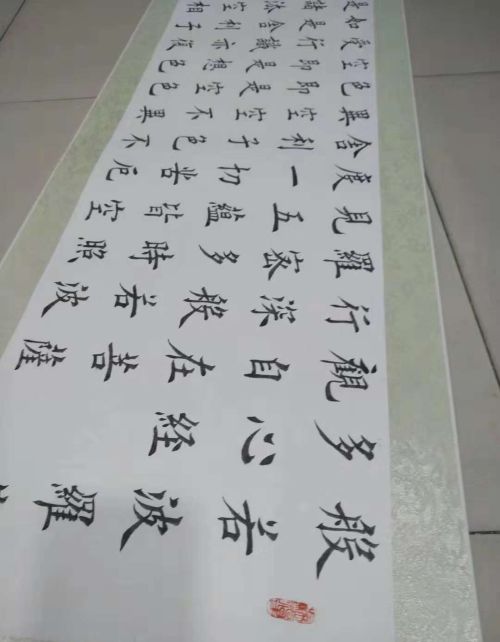 般若波羅
多心経
觀自在菩薩
行深般若波
羅密多時照
見五蘊皆空
度一切苦厄
舍利子色不
異空空不異
色即是空色
空即是想色
受行識亦復
如是舍利子
是諸法空相